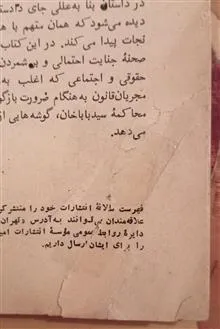 در داستان بنا به‌عللی جای دادستا
دیده می‌شود که همان متهم با ه
نجات پیدا می‌کند. در این کتاب
صحنهٔ جنایت احتمالی و بر شمردن
حقوقی و اجتماعی که اغلب به
مجریان قانون به‌هنگام ضرورت بازگو
محاکمهٔ سیدباباخان، گوشه‌هایی از
می‌دهد.
فهرست سالانهٔ انتشارات خود را منتشر کر
علاقه‌مندان می‌توانند به‌آدرس «تهران
دایرهٔ روابط عمومی مؤسسهٔ انتشارات امیر
را برای ایشان ارسال داریم.